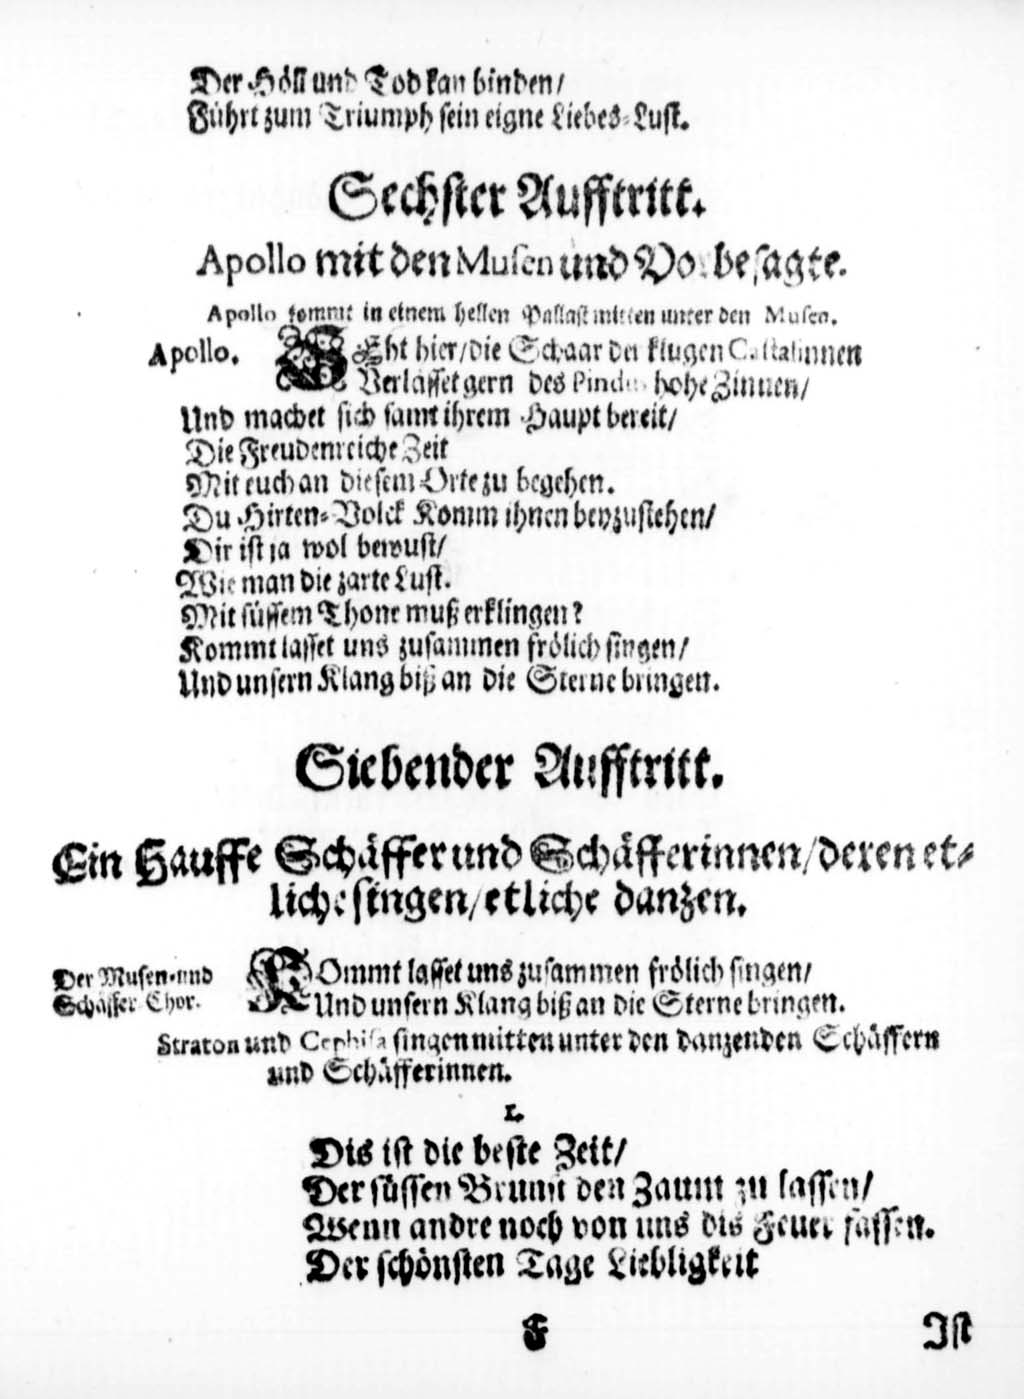 Der Höll und Tod kan binden/
Führt zum Triumph sein eigne Liebes-Lust.
Sechster Aufftritt.
Apollo mit den Musen und Vorbesagte.
Apollo kommt in einem hellen Pallast mitten unter den Musen.
Apollo. SEht hier/die Schaar der klugen Castalinnen
Verlässet gern des Pindus hohe Zinnen/
Und machet sich samt ihrem Haupt bereit/
Die Freudenreiche Zeit
Mit euch an diesem Orte zu begehen.
Du Hirten-Volck Komm ihnen beyzustehen/
Dir ist ja wol bewust/
Wie man die zarte Lust.
Mit süssem Thone muß erklingen?
Kommt lasset uns zusammen frölich singen/
Und unsern Klang biß an die Sterne bringen.
Siebender Aufftritt.
Ein Hauffe Schäffer und Schäfferinnen/deren et-
liche singen/etliche danzen.
Der Musen-und Schäffer-Chor. KOmmt lasset uns zusammen frölich singen/
Und unsern Klang biß an die Sterne bringen.
Straton und Cephisa singen mitten unter den danzenden Schäffern
und Schäfferinnen.
1.
Dis ist die beste Zeit/
Der süssen Brunst den Zaum zu lassen/
Wenn andre noch von uns dis Feuer fassen.
Der schönsten Tage Liebligkeit
F Ist